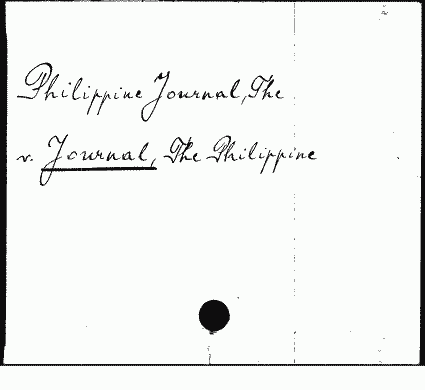 Philippine Journal, The
v. Journal, The Philippine